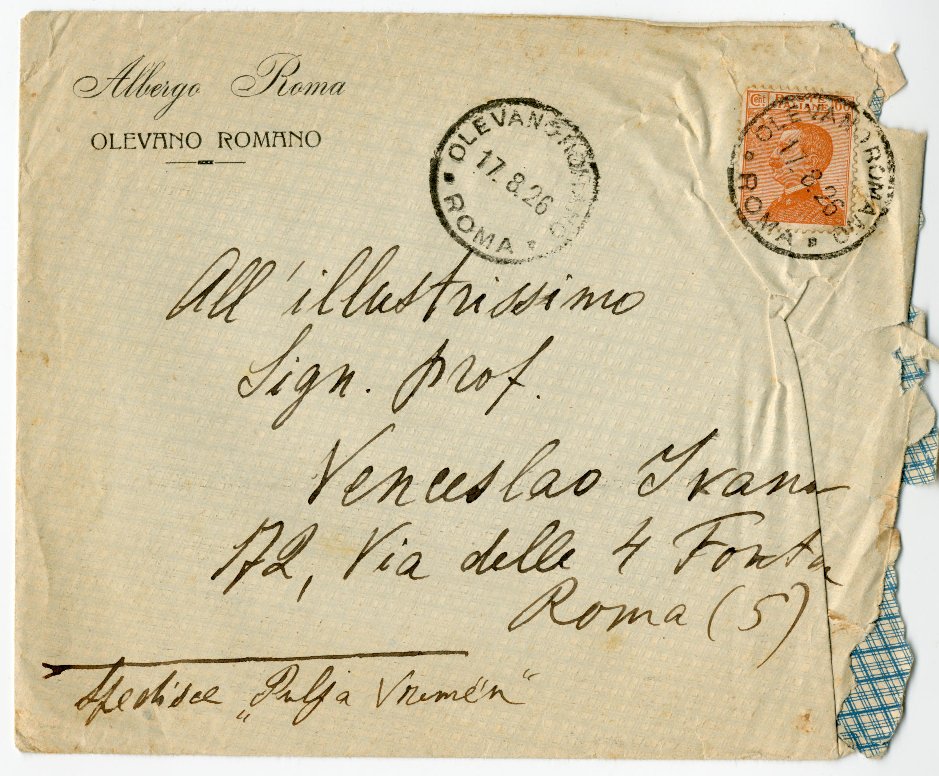 Albergo Roma
OLEVANO ROMANO
OLEVANO ROMANO
17.8.26
ROMA
OLEVANO ROMANO
17.8.26
ROMA
All'illustrissimo
Sign. Prof.
Venceslao Ivan
172, Via delle 4 Font
Roma (5)
spedisce